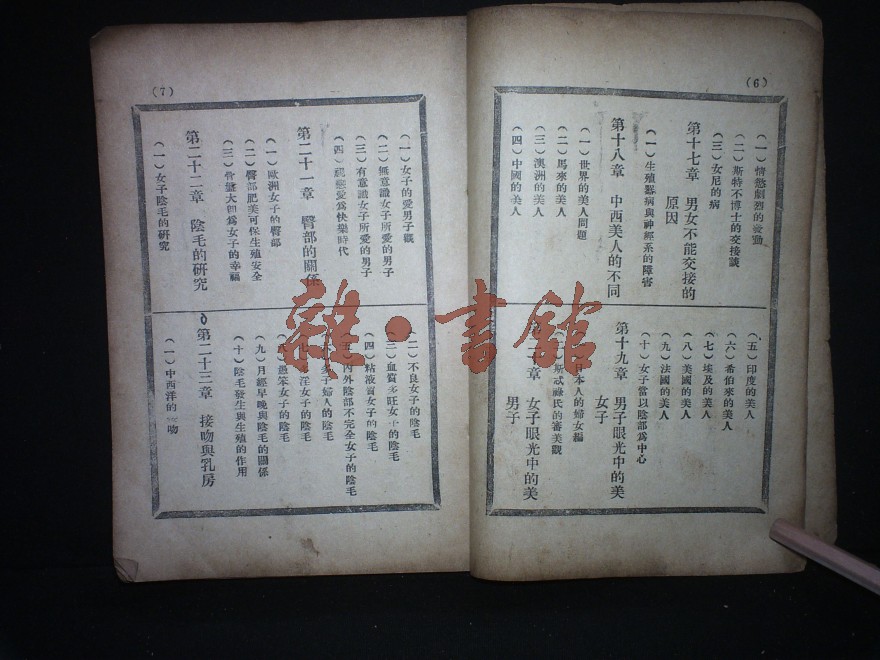 (6)
(一)情慾劇烈的發動
(二)斯特不博士的交接談
(三)女尼的病
第十七章 男女不能交接的
原因
(一)生殖器病與神經系的障害
第十八章 中西美人的不同
(一)世界的美人問題
(二)馬來的美人
(三)澳洲的美人
(四)中國的美人
(五)印度的美人
(六)希伯來的美人
(七)埃及的美人
(八)美國的美人
(九)法國的美人
(十)女子當以陰部爲中心
第十九章 男子眼光中的美
女子
日本人的婦女編
斯忒祿氏的審美觀
第二十章 女子眼光中的美
男子
(7)
(一)女子的愛男子觀
(二)無意識女子所愛的男子
(三)有意識女子所愛的男子
(四)視戀愛爲快樂時代
第二十一章 臀部的關係
(一)歐洲女子的臀部
(二)臀部肥美可保生殖安全
(三)骨盤大卽爲女子的幸福
第二十二章 陰毛的研究
(一)女子陰毛的研究
(二)不良女子的陰毛
(三)血質多旺女子的陰毛
(四)粘液質女子的陰毛
(五)內外陰部不完全女子的陰毛
子婦人的陰毛
淫女子的陰毛
愚笨女子的陰毛
(九)月經早晚與陰毛的關係
(十)陰毛發生與生殖的作用
第二十三章 接吻與乳房
(一)中西洋的接吻
雜·書館